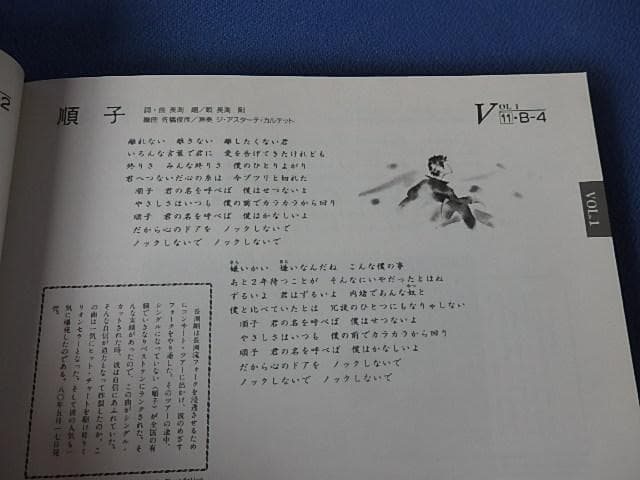 順子
詞・曲 長渕 剛／歌 長渕 剛
VOL.1
11・B-4
離れない 離さない 離したくない君
いろんな言葉で君に 愛を告げてきたけれども
終りさ みんな終りさ 僕のひとりよがり
君へつないだ心の糸は 今プツリと切れた
順子 君の名を呼べば 僕はせつないよ
やさしさはいつも 僕の前でカラカラから回り
順子 君の名を呼べば 僕はかなしいよ
だから心のドアを ノックしないで
ノックしないで ノックしないで
VOL.1
嫌いかい 嫌いなんだね こんな僕の事
あと2年待つことが そんなにいやだったとはね
ずるいよ 君はずるいよ 内緒であんな奴と
僕と比べていたとは 冗談のひとつにもなりゃしない
順子 君の名を呼べば 僕はせつないよ
やさしさはいつも 僕の前でカラカラから回り
順子 君の名を呼べば 僕はかなしいよ
だから心のドアを ノックしないで
ノックしないで ノックしないで
長渕剛は長渕流フォークを浸透させるため
にコンサート・ツアーに出かけ、彼のめざす
フォークをやり通した。そのツアーの途中、
シングルになっていない〈順子〉が全国の有
線でいきなりベストテンにランクされた。そ
んな実績があったので、この曲がシングル・
カットされた時、彼は自信にあふれていた。
そんな自信が迫力となって炸裂したのか、こ
の曲は一気にヒット・チャートを駆け昇りミ
リオンセラーとなった。そして彼の人気も一
気に爆発したのである。八〇年五月一七日発
売。